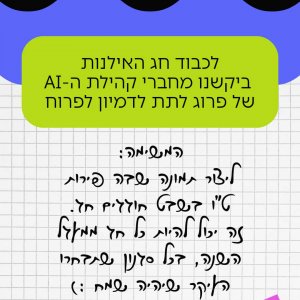 לכבוד חג האילנות
ביקשנו מחברי קהילת ה-AI
של פרוג לתת לדמיון לפרוח
המשימה:
ליצור תמונה שבה פירות
ט"ו בשבט חוגגים חג.
זה יכול להיות כל חג ממעגל
השנה, בכל סגנון שתבחרו
העיקר שיהיה שמח :)